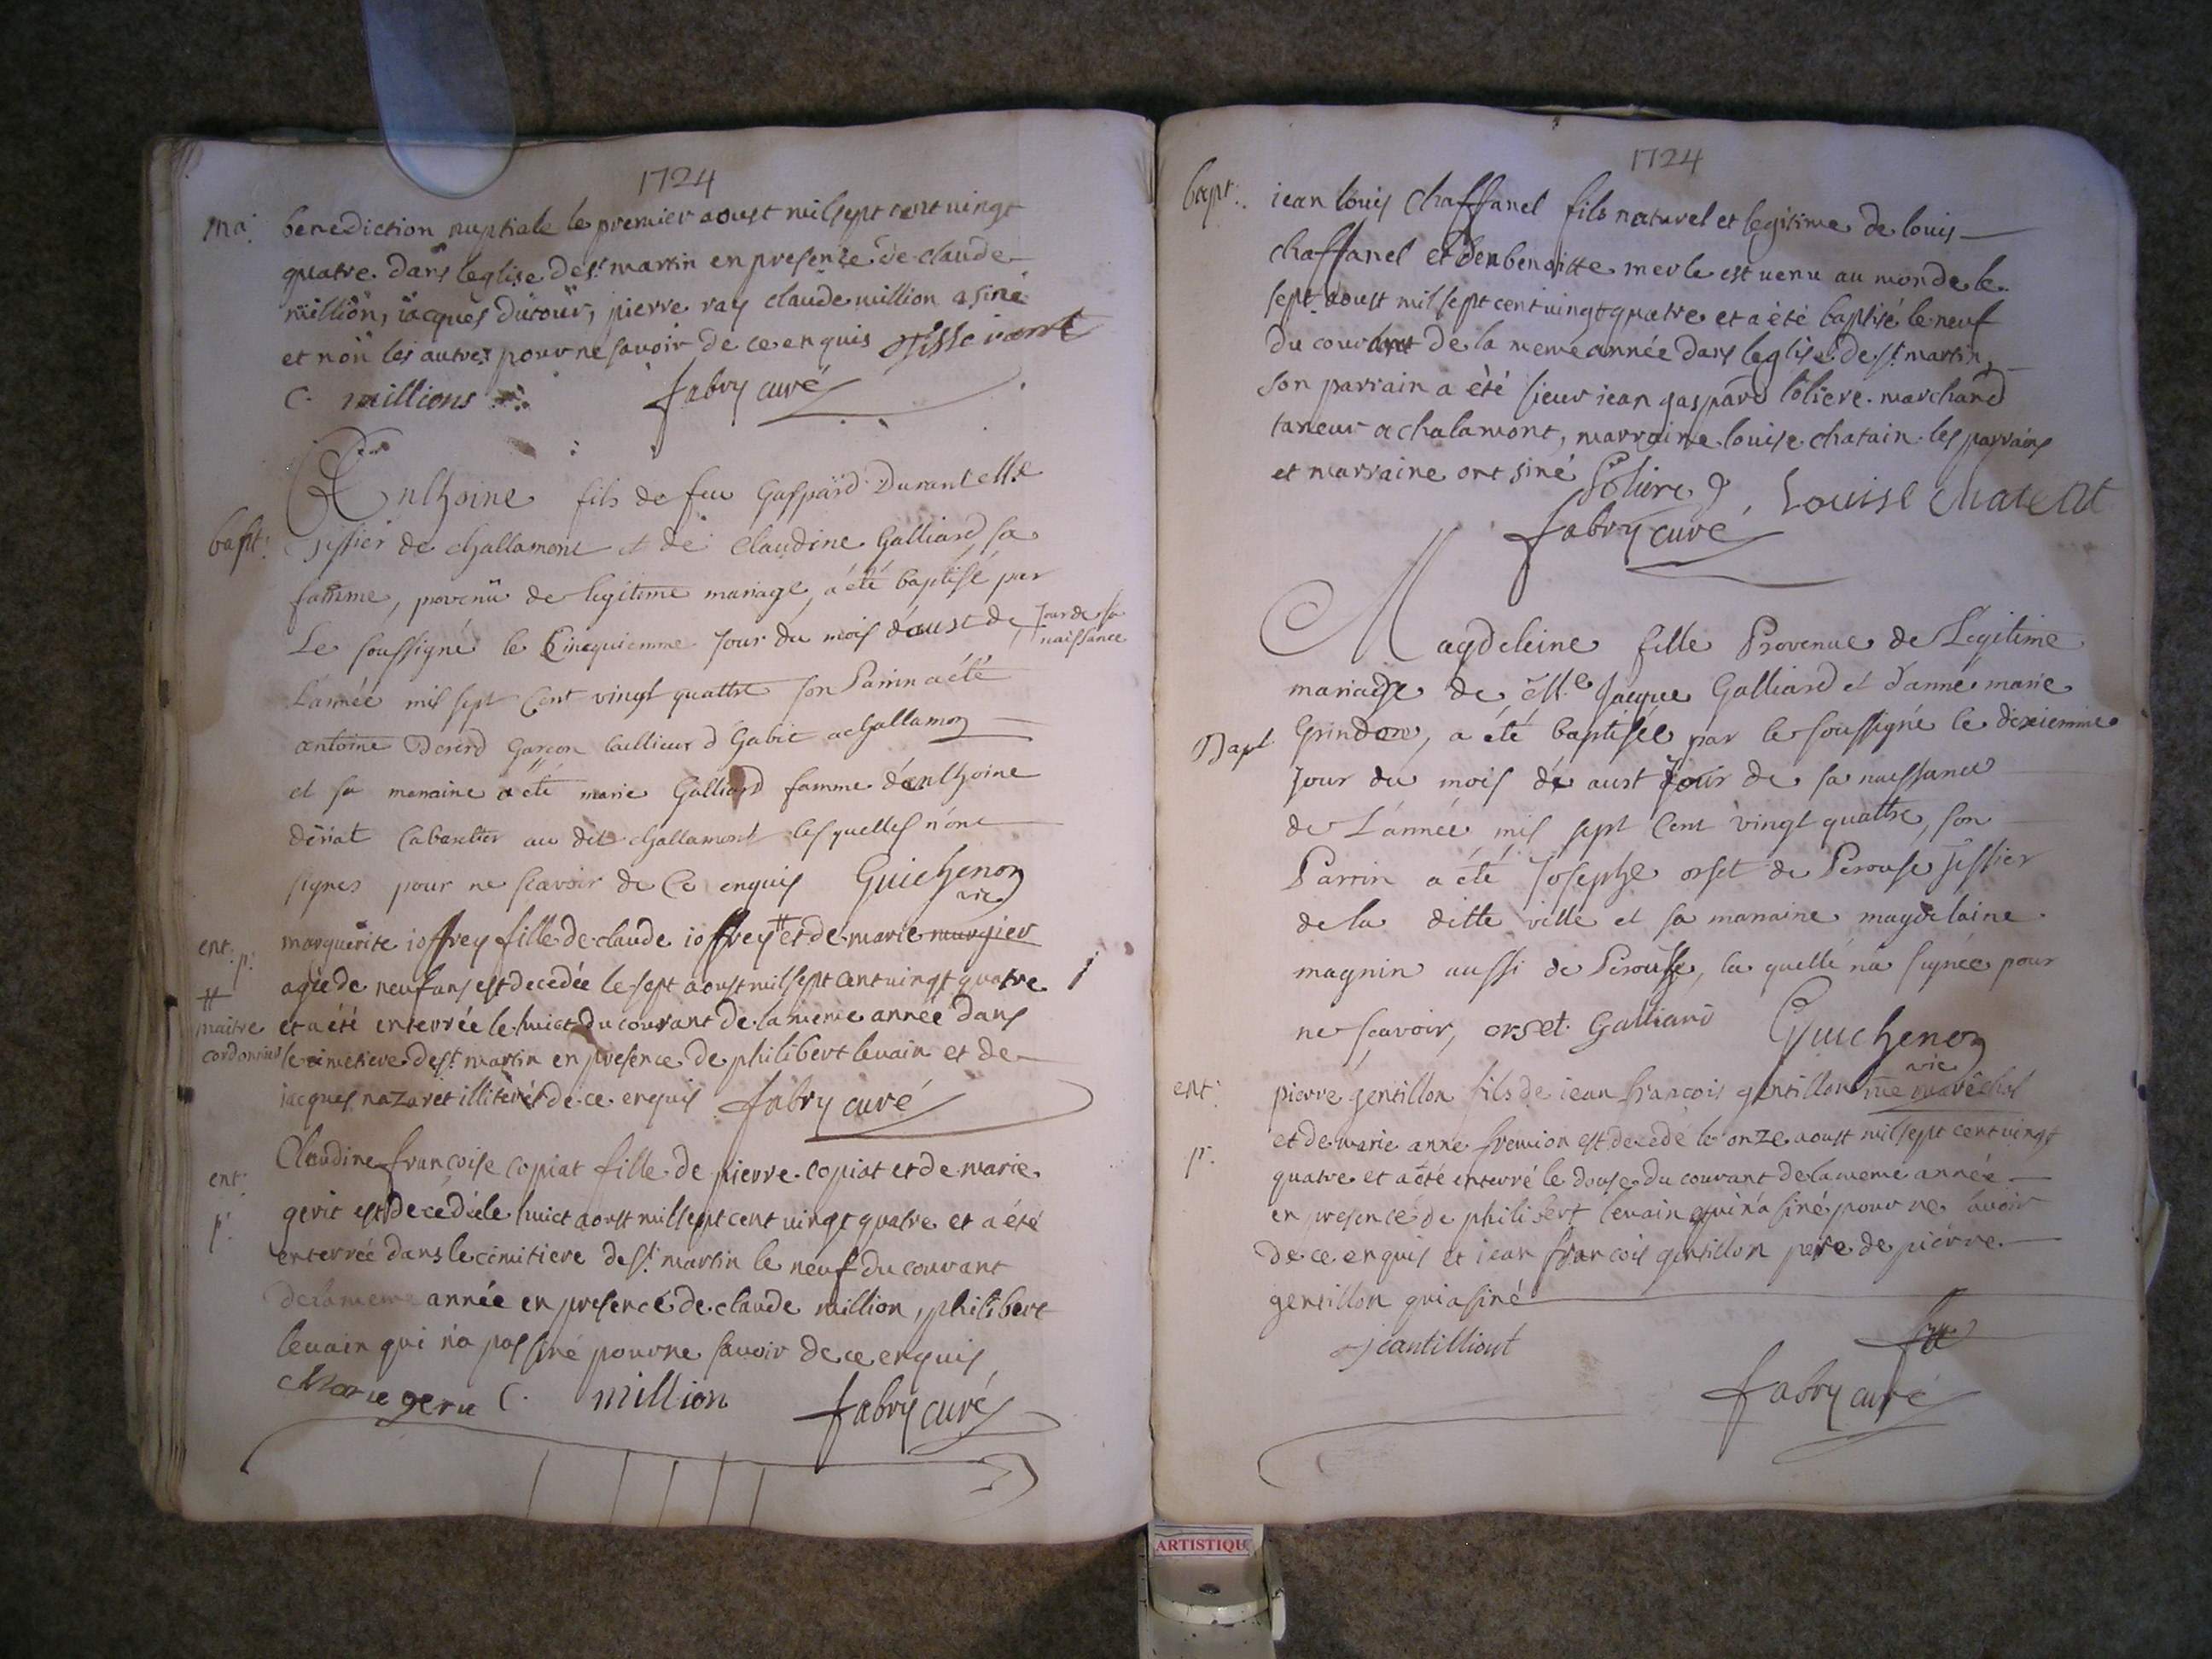 1724
ma. benediction nuptiale le premier aoust mil sept cent uingt
quatre dans leglise de st martin en presence de claude
million, iacques dutour, pierre ray claude million a siné
et non les autres pour ne savoir de ce enquis
C. millions fabry curé
Anthoine fils de feu Gaspard Durand
bapt: tissier de challamont et de Claudine Galliard sa
famme, provenü de legitime mariage, a été baptisé par
Le soussigné le Cinquiemme jour du mois d'aust de jour de sa naissance
L'année mil sept Cent vingt quattre son Parrin a été
antoine Garçon taillieur d'habit a challamon
et sa marraine a été marie Galliard famme d'anthoine
deriat Cabaretier au dit challamont lesquelles n'ont
signes pour ne scavoir de Ce enquis Guichenon
vic
ent. p. marguerite ioffrey fille de claude ioffrey # et de marie murgier
agée de neuf ans est decedée le sept aoust mil sept cent uingt quatre
# maitre cordonnier
et a été enterrée le huict du courant de la meme année dans
le cimetiere de st martin en presence de philibert leuain et de
iacques nazaret illiterés de ce enquis fabry curé
Claudine francoise copiat fille de pierre copiat et de marie
ent. p. geric est decédée le huict aoust mil sept cent uingt quatre et a été
enterrée dans le cimitiere de st martin le neuf du courant
de la meme année en presence de claude million, philibert
leuain qui n'a pas siné pour ne savoir de ce enquis
Marie geric C. million fabry curé
1724
bapt. iean louis chaffanel fils naturel et legitime de louis
chaffanel et de benoitte merle est uenu au monde le
sept aoust mil sept cent uingt quatre et a été baptisé le neuf
du courant de la meme année dans leglise de st martin,
son parrain a été sieur iean gaspard soliere marchand
taneur a chalamont, marraine louise chatain les parrains
et marraine ont siné Soliere
Louise
fabry curé
Magdeleine fille Provenue de Legitime
mariage de Jacque Galliard et d'anne marie
Bapt Grindon, a été baptisée par le soussigné le dixiemme
jour du mois de aust jour de sa naissance
de L'année mil sept Cent vingt quattre, son
Parrin a été Josephe orset de Perouse tissier
de la ditte ville et sa marraine magdelaine
magnin aussi de Perouse, la quelle n'a signée pour
ne scavoir, orset Galliard Guichenon
vic
ent. pierre gentillon fils de iean françois gentillon me marêchal
p. et de marie anne fremion est decedé le onze aoust mil sept cent uingt
quatre et a été enterré le douse du courant de la meme année
en presence de philibert leuain qui n'a siné pour ne savoir
de ce enquis et iean françois gentillon pere de pierre
gentillon qui a siné
jeantilliont
fabry curé
ARTISTIQU